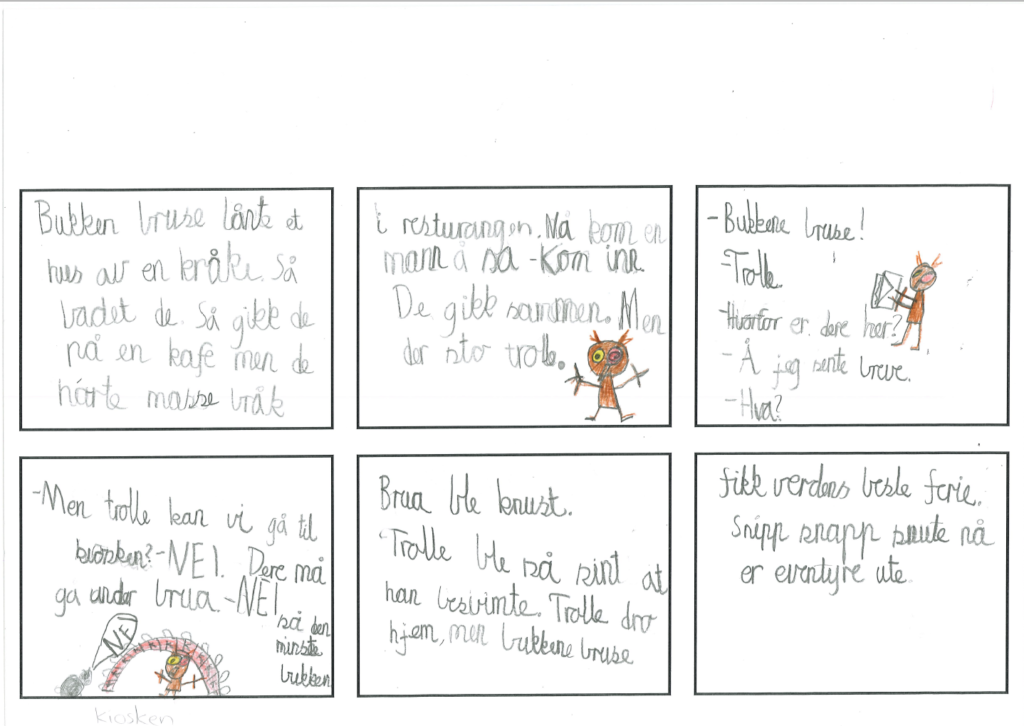 Bukken bruse lånte et
hus av en kråke. Så
badet de. Så gikk de
på en kafe men de
hørte masse bråk
i resturangen. Nå kom en
mann å sa -Kom inn.
De gikk sammen. Men
der sto trolle.
-Bukkene bruse!
-Trolle.
-Hvorfor er dere her?
-Å jeg sente breve.
-Hva?
-Men trolle kan vi gå til
kiosken?-NEI. Dere må
ga under brua.-NEI
så den
minste
bukken
NEI
kiosken
Brua ble knust.
Trolle ble så sint at
han besvimte. Trolle dro
hjem, men bukkene bruse
fikk verdens beste ferie.
Snipp snapp snute nå
er eventyre ute.